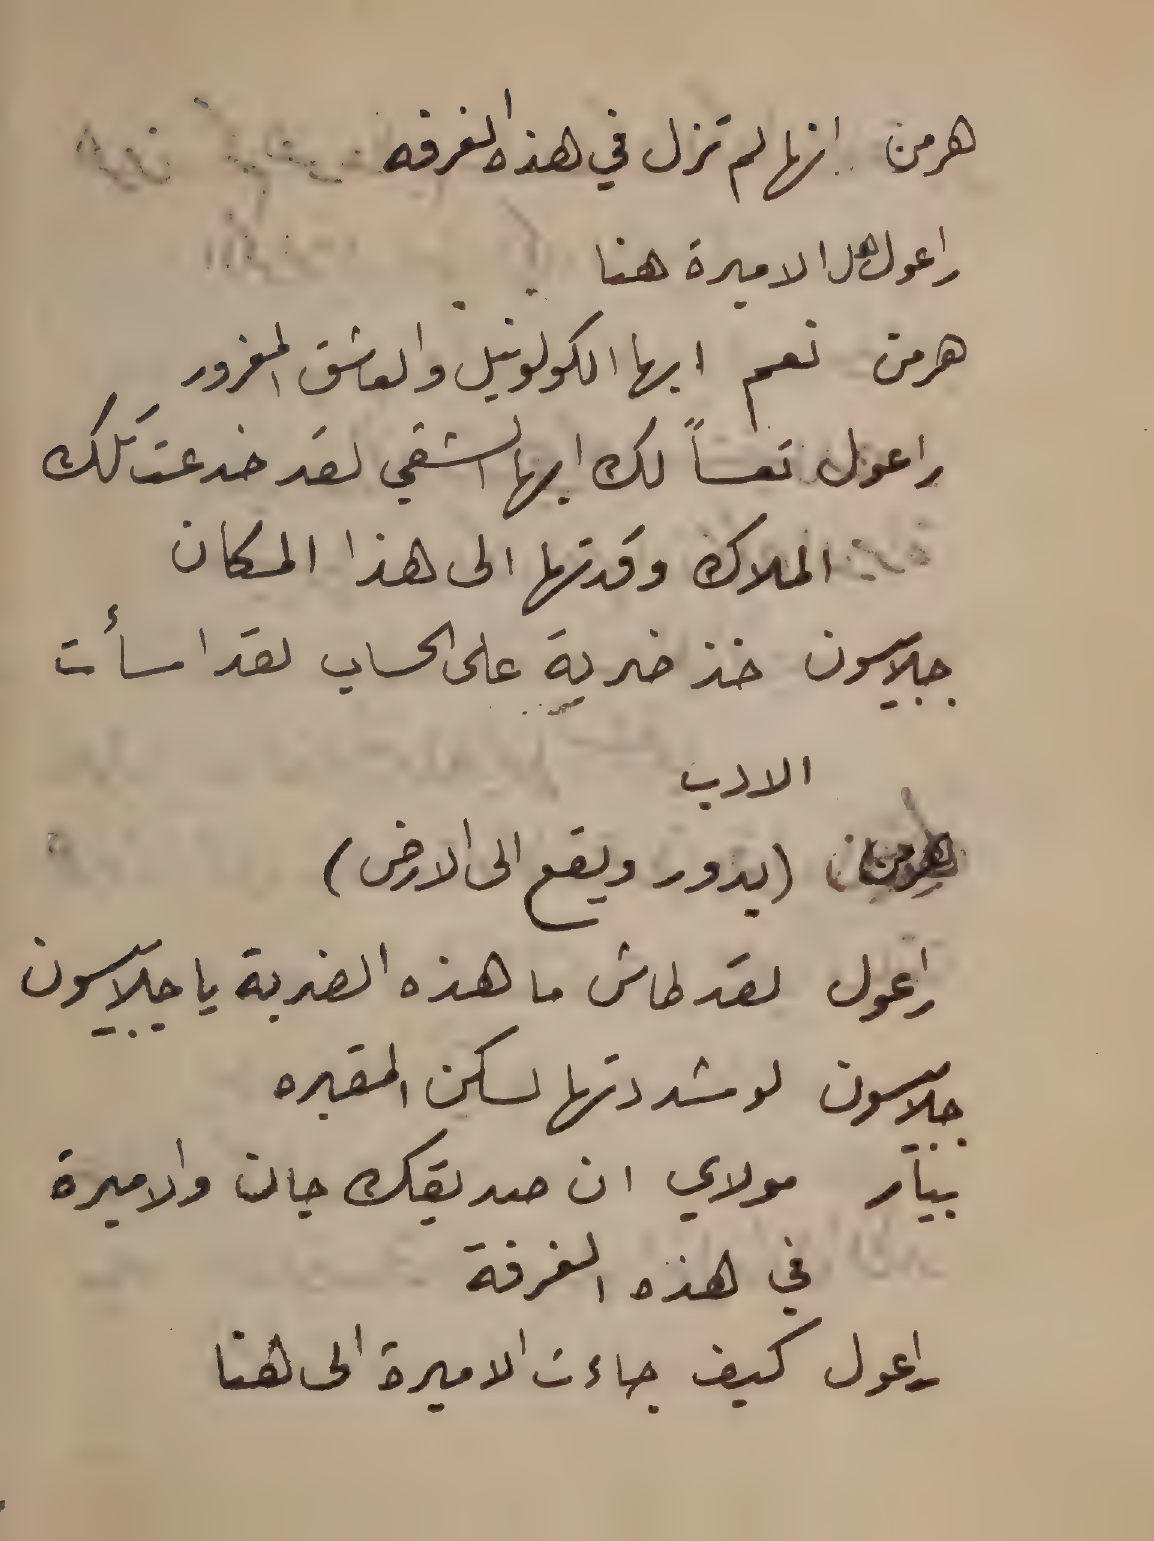 هرمن انها لم تزل في هذه الغرفه
راعول هل الاميرة هنا
هرمن نعم ايها الكولونيل والعاشق المغرور
راعول تعساً لك ايها الشقي لقد خدعت تلك
الملاك وقدتها الى هذا المكان
جلاسون خذ ضربة على الحساب لقد اسأت
الادب
هرمن (يدور ويقع الى الارض)
راعول لقد طاش ما هذه الضربة يا جلاسون
جلاسون لو شددتها لسكن المقبره
بيار مولاي ان صديقك جان والاميرة
في هذه الغرفة
راعول كيف جاءت الاميرة الى هنا